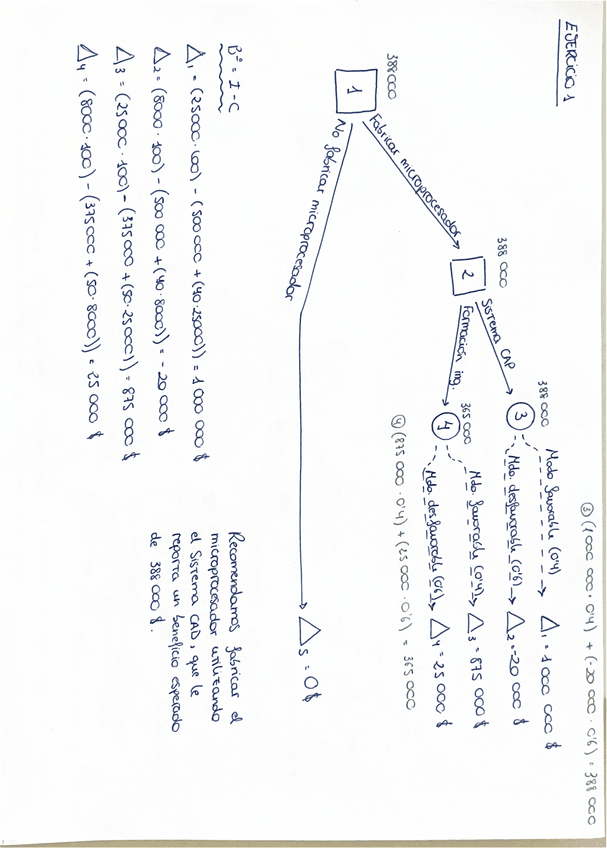 EJERCICIO 1
③ (1 000 000 · 0'4) + (-20 000 · 0'6) = 388 000
388 000
Modo favorable (0'4)
△₁ = 1 000 000 $
388 000
Sistema CAP
3
Mdo. desfavorable (0'6)
△₂ = -20 000 $
388000
Fabricar microprocesador
2
365 000
Mdo. favorable (0'4)
△₃ = 875 000 $
1
Formación ing.
4
Mdo. desfavorable (0'6)
△₄ = 25 000 $
④ (875 000 · 0'4) + (25 000 · 0'6) = 365 000
No fabricar microprocesador
△₅ = 0 $
Bº = I - C
△₁ = (25000 · 100) - (500 000 + (40 · 25000)) = 1 000 000 $
△₂ = (8000 · 100) - (500 000 + (40 · 8000)) = - 20 000 $
△₃ = (25 000 · 100) - (375 000 + (50 · 25 000)) = 875 000 $
△₄ = (8000 · 100) - (375 000 + (50 · 8000)) = 25 000 $
Recomendamos fabricar el
microprocesador utilizando
el Sistema CAD, que le
reporta un beneficio esperado
de 388 000 $.